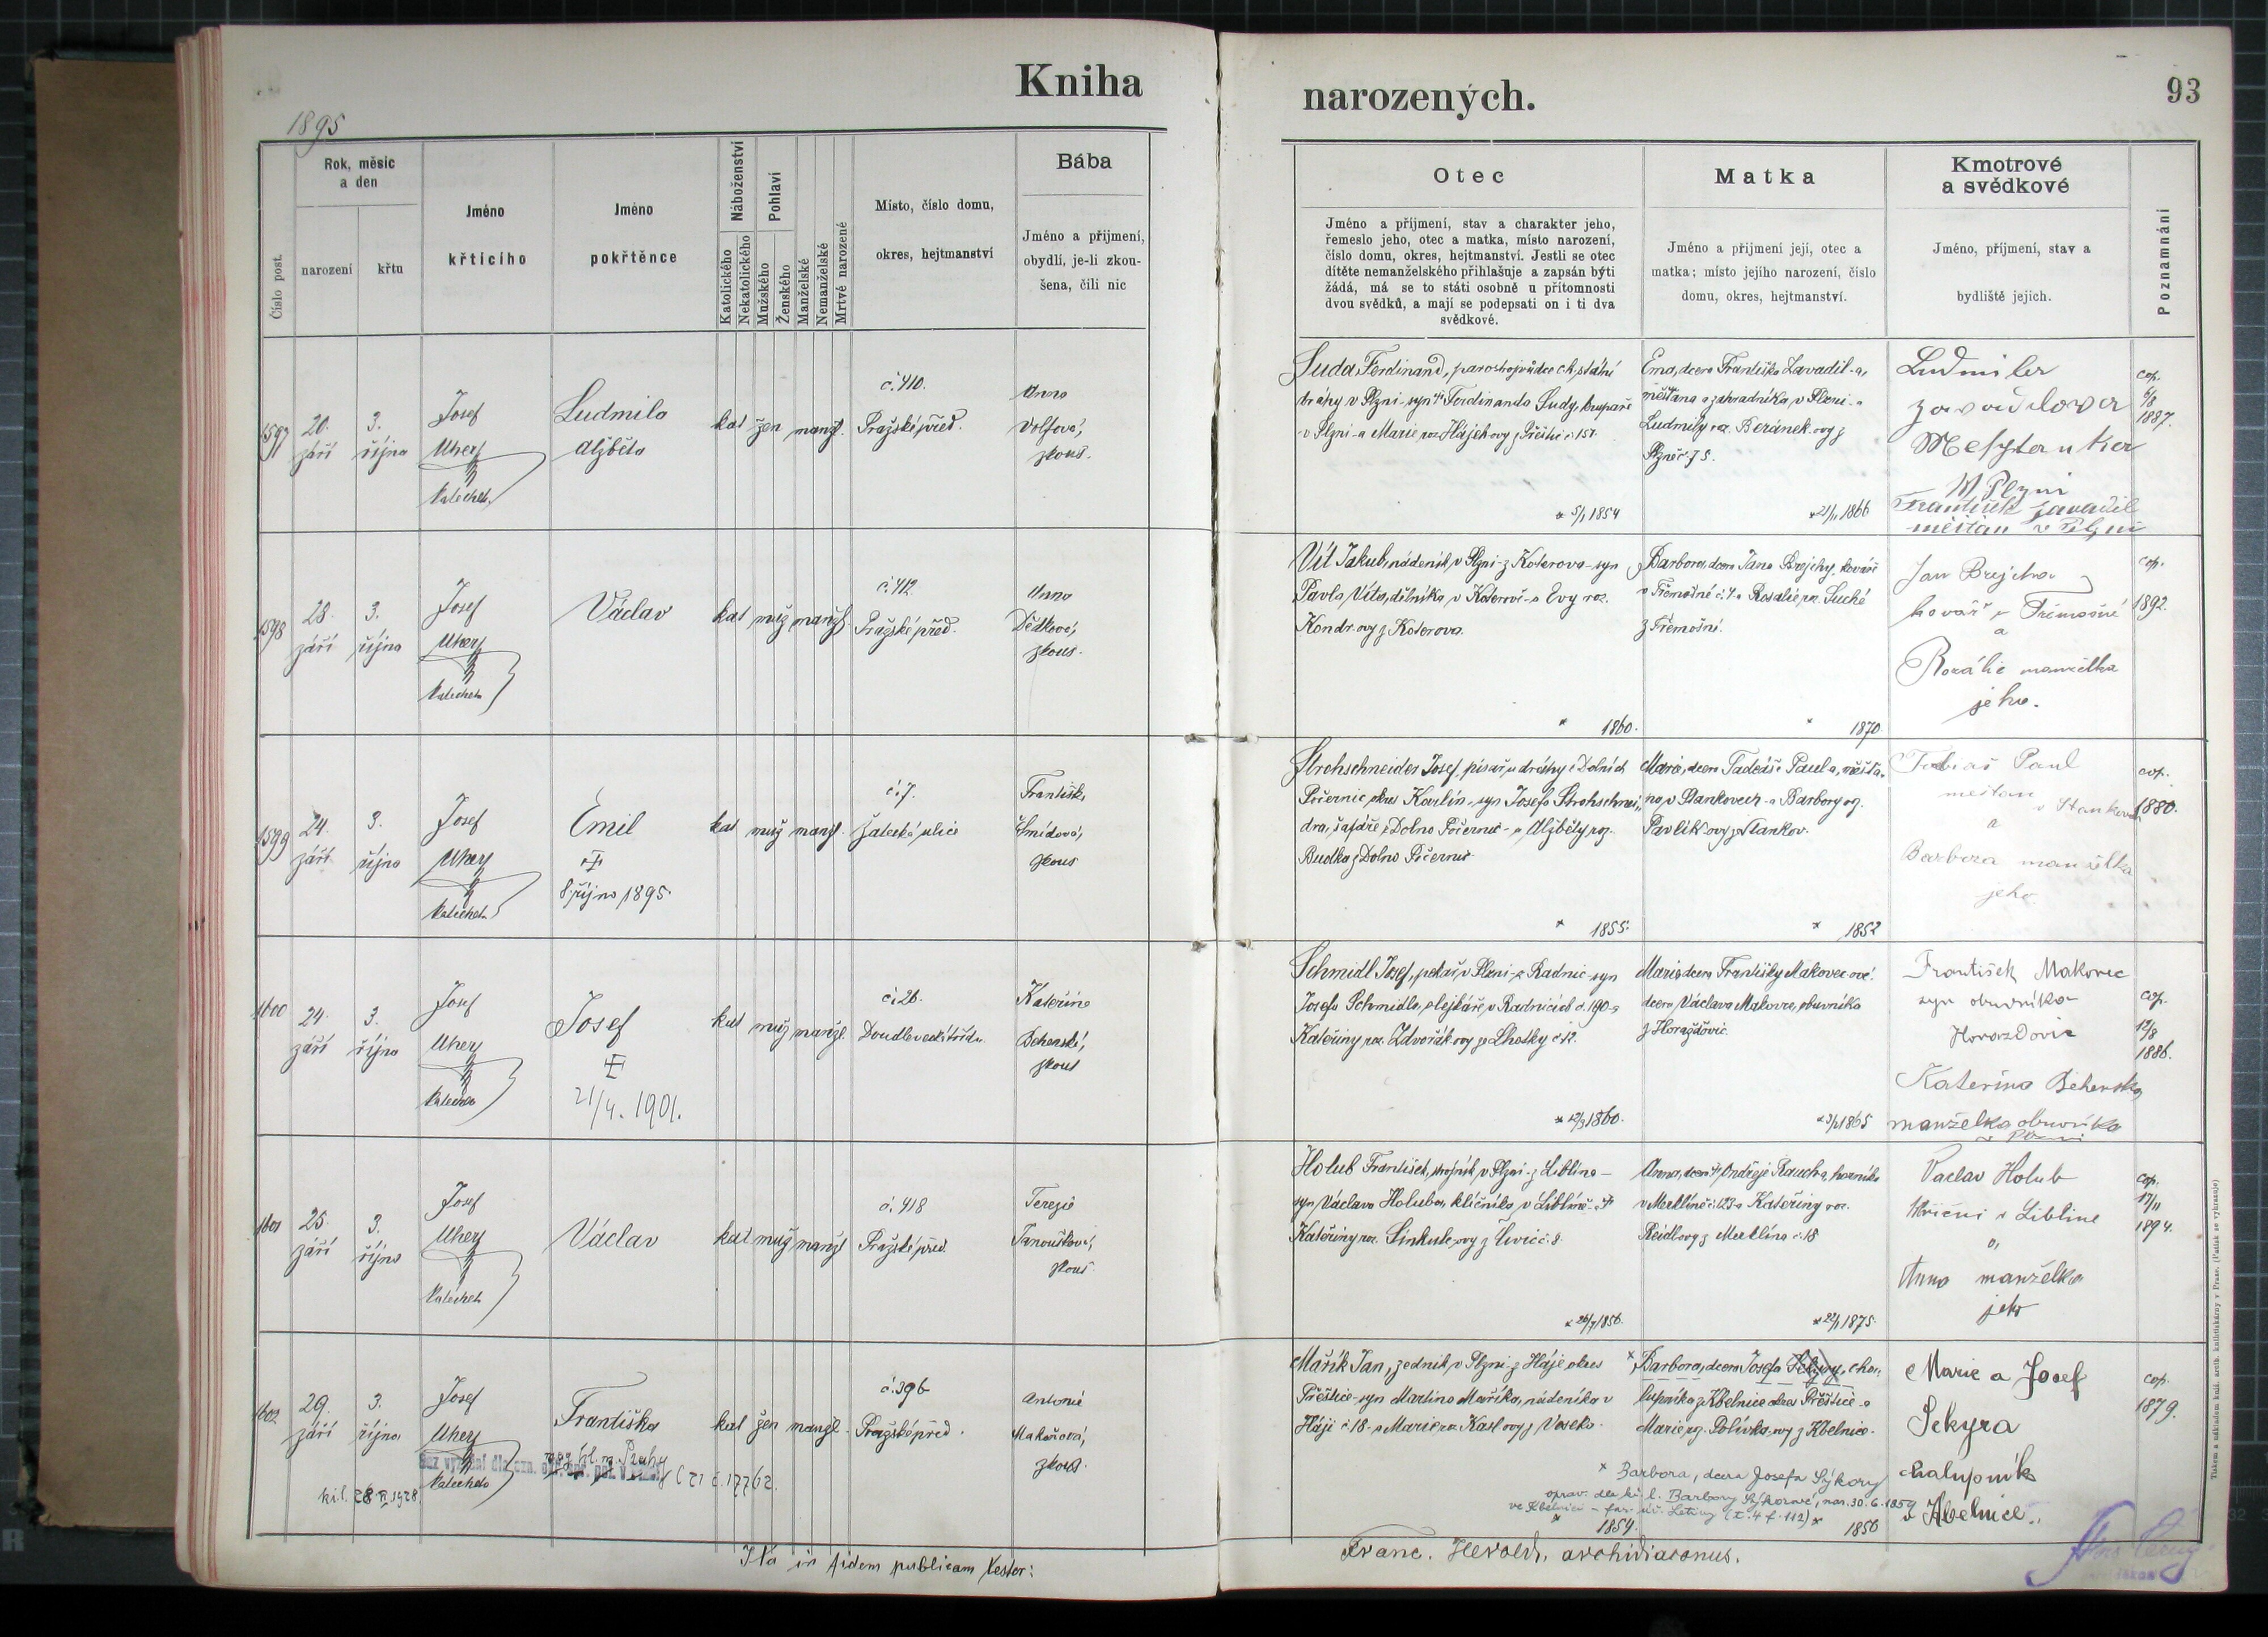 Kniha
narozených.
93
1895
Číslo post.
Rok, měsíc
a den
narození
křtu
Jméno
křticího
Jméno
pokřtěnce
Náboženství
Katolického
Nekatolického
Pohlaví
Mužského
Ženského
Manželské
Nemanželské
Mrtvě narozené
Místo, číslo domu,
okres, hejtmanství
Bába
Jméno a příjmení,
obydlí, je-li zkou-
šena, čili nic
Otec
Jméno a příjmení, stav a charakter jeho,
řemeslo jeho, otec a matka, místo narození,
číslo domu, okres, hejtmanství. Jestli se otec
dítěte nemanželského přihlašuje a zapsán býti
žádá, má se to státi osobně u přítomnosti
dvou svědků, a mají se podepsati on i ti dva
svědkové.
Matka
Jméno a příjmení její, otec a
matka; místo jejího narození, číslo
domu, okres, hejtmanství.
Kmotrové
a svědkové
Jméno, příjmení, stav a
bydliště jejich.
Poznamnání
1597
20.
září
3.
října
Josef
Uherz
katecheta
Ludmila
Alžběta
kat žen manžl.
č. 410.
Pražské před.
Anna
Volfová,
zkouš.
Suda Ferdinand, parostrojvůdce c.k. státní
dráhy v Plzni - syn Ferdinanda Sudy, krupaře
v Plzni - a Marie roz. Hájek-ovy z Přeštic č. 151.
* 5/1 1854
Ema, dcera Františka Zavadil-a,
měšťana a zahradníka v Plzni - a
Ludmily roz. Beránek-ovy z
Plzně č. 75.
* 21/11 1866
Ludmila
Zavadilova
W Plzni
František Zavadil
měštan v Plzni
cop.
6/8
1887.
1598
28.
září
3.
října
Josef
Uherz
katecheta
Václav
kat muž manžl.
č. 412
Pražské před.
Anna
Dědková,
zkouš.
Vít Jakub, nádeník v Plzni - z Koterova - syn
Pavla Víta, dělníka v Koterově - a Evy roz.
Kondr-ovy z Koterova.
* 1860.
Barbora, dcera Jana Brejchy, kováře
v Třemošné č. 4 - a Rosalie roz. Suché
z Třemošní.
* 1870.
Jan Brejcha
kovář v Třemošné
a
Rozálie manželka
jeho.
cop.
1892.
1599
24.
září
3.
října
Josef
Uherz
katecheta
Emil
8. října 1895.
kat muž manžl.
č. 7.
Žatecká ulice
Františk.
Šmídová,
zkouš
Strohschneider Josef, písař u dráhy z Dolních
Počernic, okres Karlín - syn Josefa Strohschnei-
dra, šafáře z Dolno Počernic - a Alžběty roz.
Budka z Dolno Počernic.
* 1855.
Marie, dcera Tadeáše Paula, měšťa-
na v Stankovech - a Barbory roz.
Pavlík-ovy z Stankov.
* 1852
Tobiaš Paul
meštan
v Stankově
a
Barbora manželka
jeho
cop.
1880.
1600
24.
září
3.
října
Josef
Uherz
katecheta
Josef
21/4. 1901.
kat muž manžl.
č. 26.
Doudlevecká třída
Kateřina
Beherská,
zkouš
Schmidl Josef, pekař v Plzni - z Radnic - syn
Josefa Schmidla, olejkáře v Radnicích č. 190 - a
Kateřiny roz. Zdvořák-ovy ze Lhotky č. 12.
* 12/3 1860.
Marie, dcera Františky Makovec-ové,
dcera Václava Makovce, obuvníka
z Horažďovic.
1865
František Makovec
syn obuvníka
Horazdovic
Kateřina Beherska
manželka obuvníka
v Plzni
cop.
12/8
1886.
1601
25.
září
3.
října
Josef
Uherz
katecheta
Václav
kat muž manžl
č. 418
Pražské před.
Terezie
Janoušková,
zkouš.
Holub František, strojník v Plzni - z Liblína -
syn Václava Holuba, klíčníka v Liblíně - a
Kateřiny roz. Šinkule-ovy z Čivic č. 8
* 26/7 1856.
Anna, dcera Ondřeje Raucha, horníka
v Merklíně č. 123 - a Kateřiny roz.
Reidl-ovy z Merklína č. 18
* 22/1 1875.
Vaclav Holub
v Libline
a,
Anna manželka
jeho
cop.
17/11
1894.
1602
29.
září
3.
října
Josef
Uherz
katecheta
Františka
kat žen manžl.
č. 396
Pražské před.
Antonie
Makařová,
zkouš.
Mařík Jan, zedník v Plzni - z Háje okres
Přeštice - syn Martina Maříka, nádeníka v
Háji č. 18 - a Marie roz. Kasl-ovy z Voseka.
1854.
* Barbora, dcera Josefa Sekyry, cha-
lupníka z Kbelnice okres Přeštice - a
Marie roz. Polívka-ovy z Kbelnice.
* Barbora, dcera Josefa Sýkory
oprav. dle kř. l. Barbory Sýkorové, nar. 30. 6. 1859
ve Kbelnici - far. úř. Letiny (t. 4 f. 112)
* 1856
Marie a Josef
Sekyra
chalupník
v Kbelnice.
cop.
1879.
Ita in fidem publicam testor:
Franc. Herold, archidiaconus.